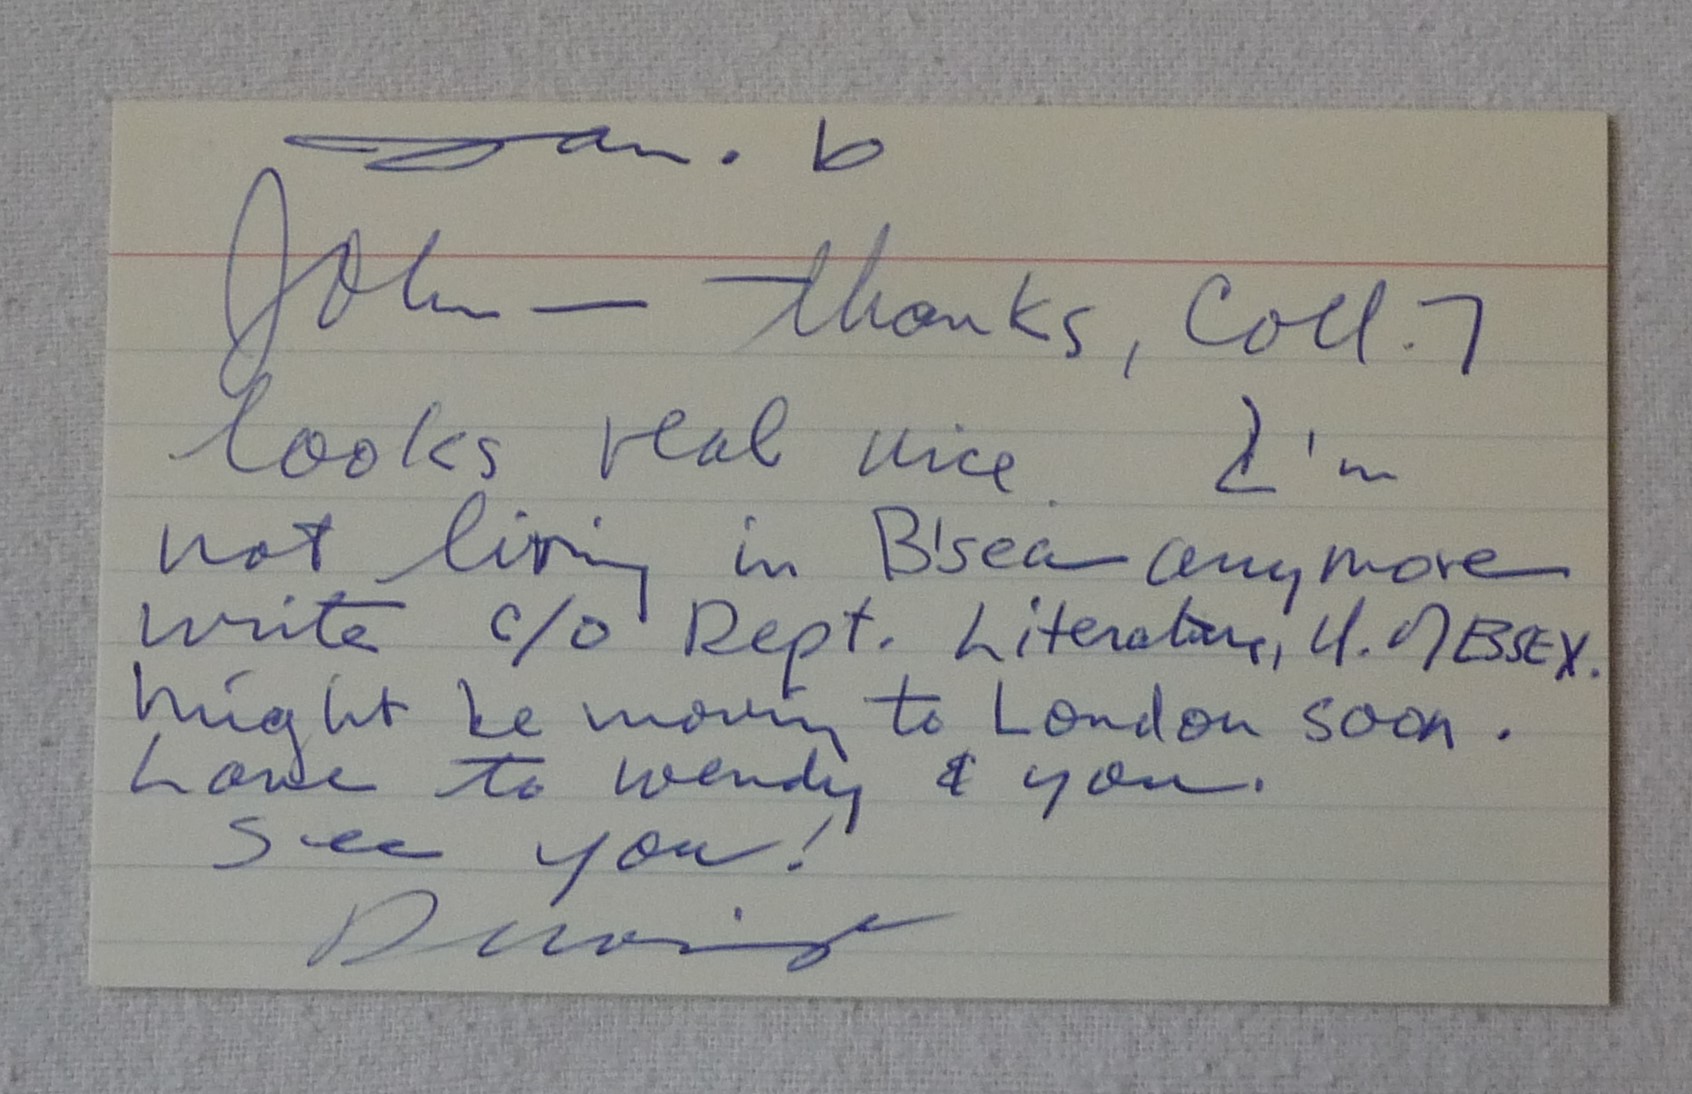 Jan. 6
John — thanks, Coll. 7
looks real nice. I'm
not living in B'sea anymore
write c/o Dept. Literature, U. of ESSEX.
might be moving to London soon.
Love to Wendy & you.
See you!